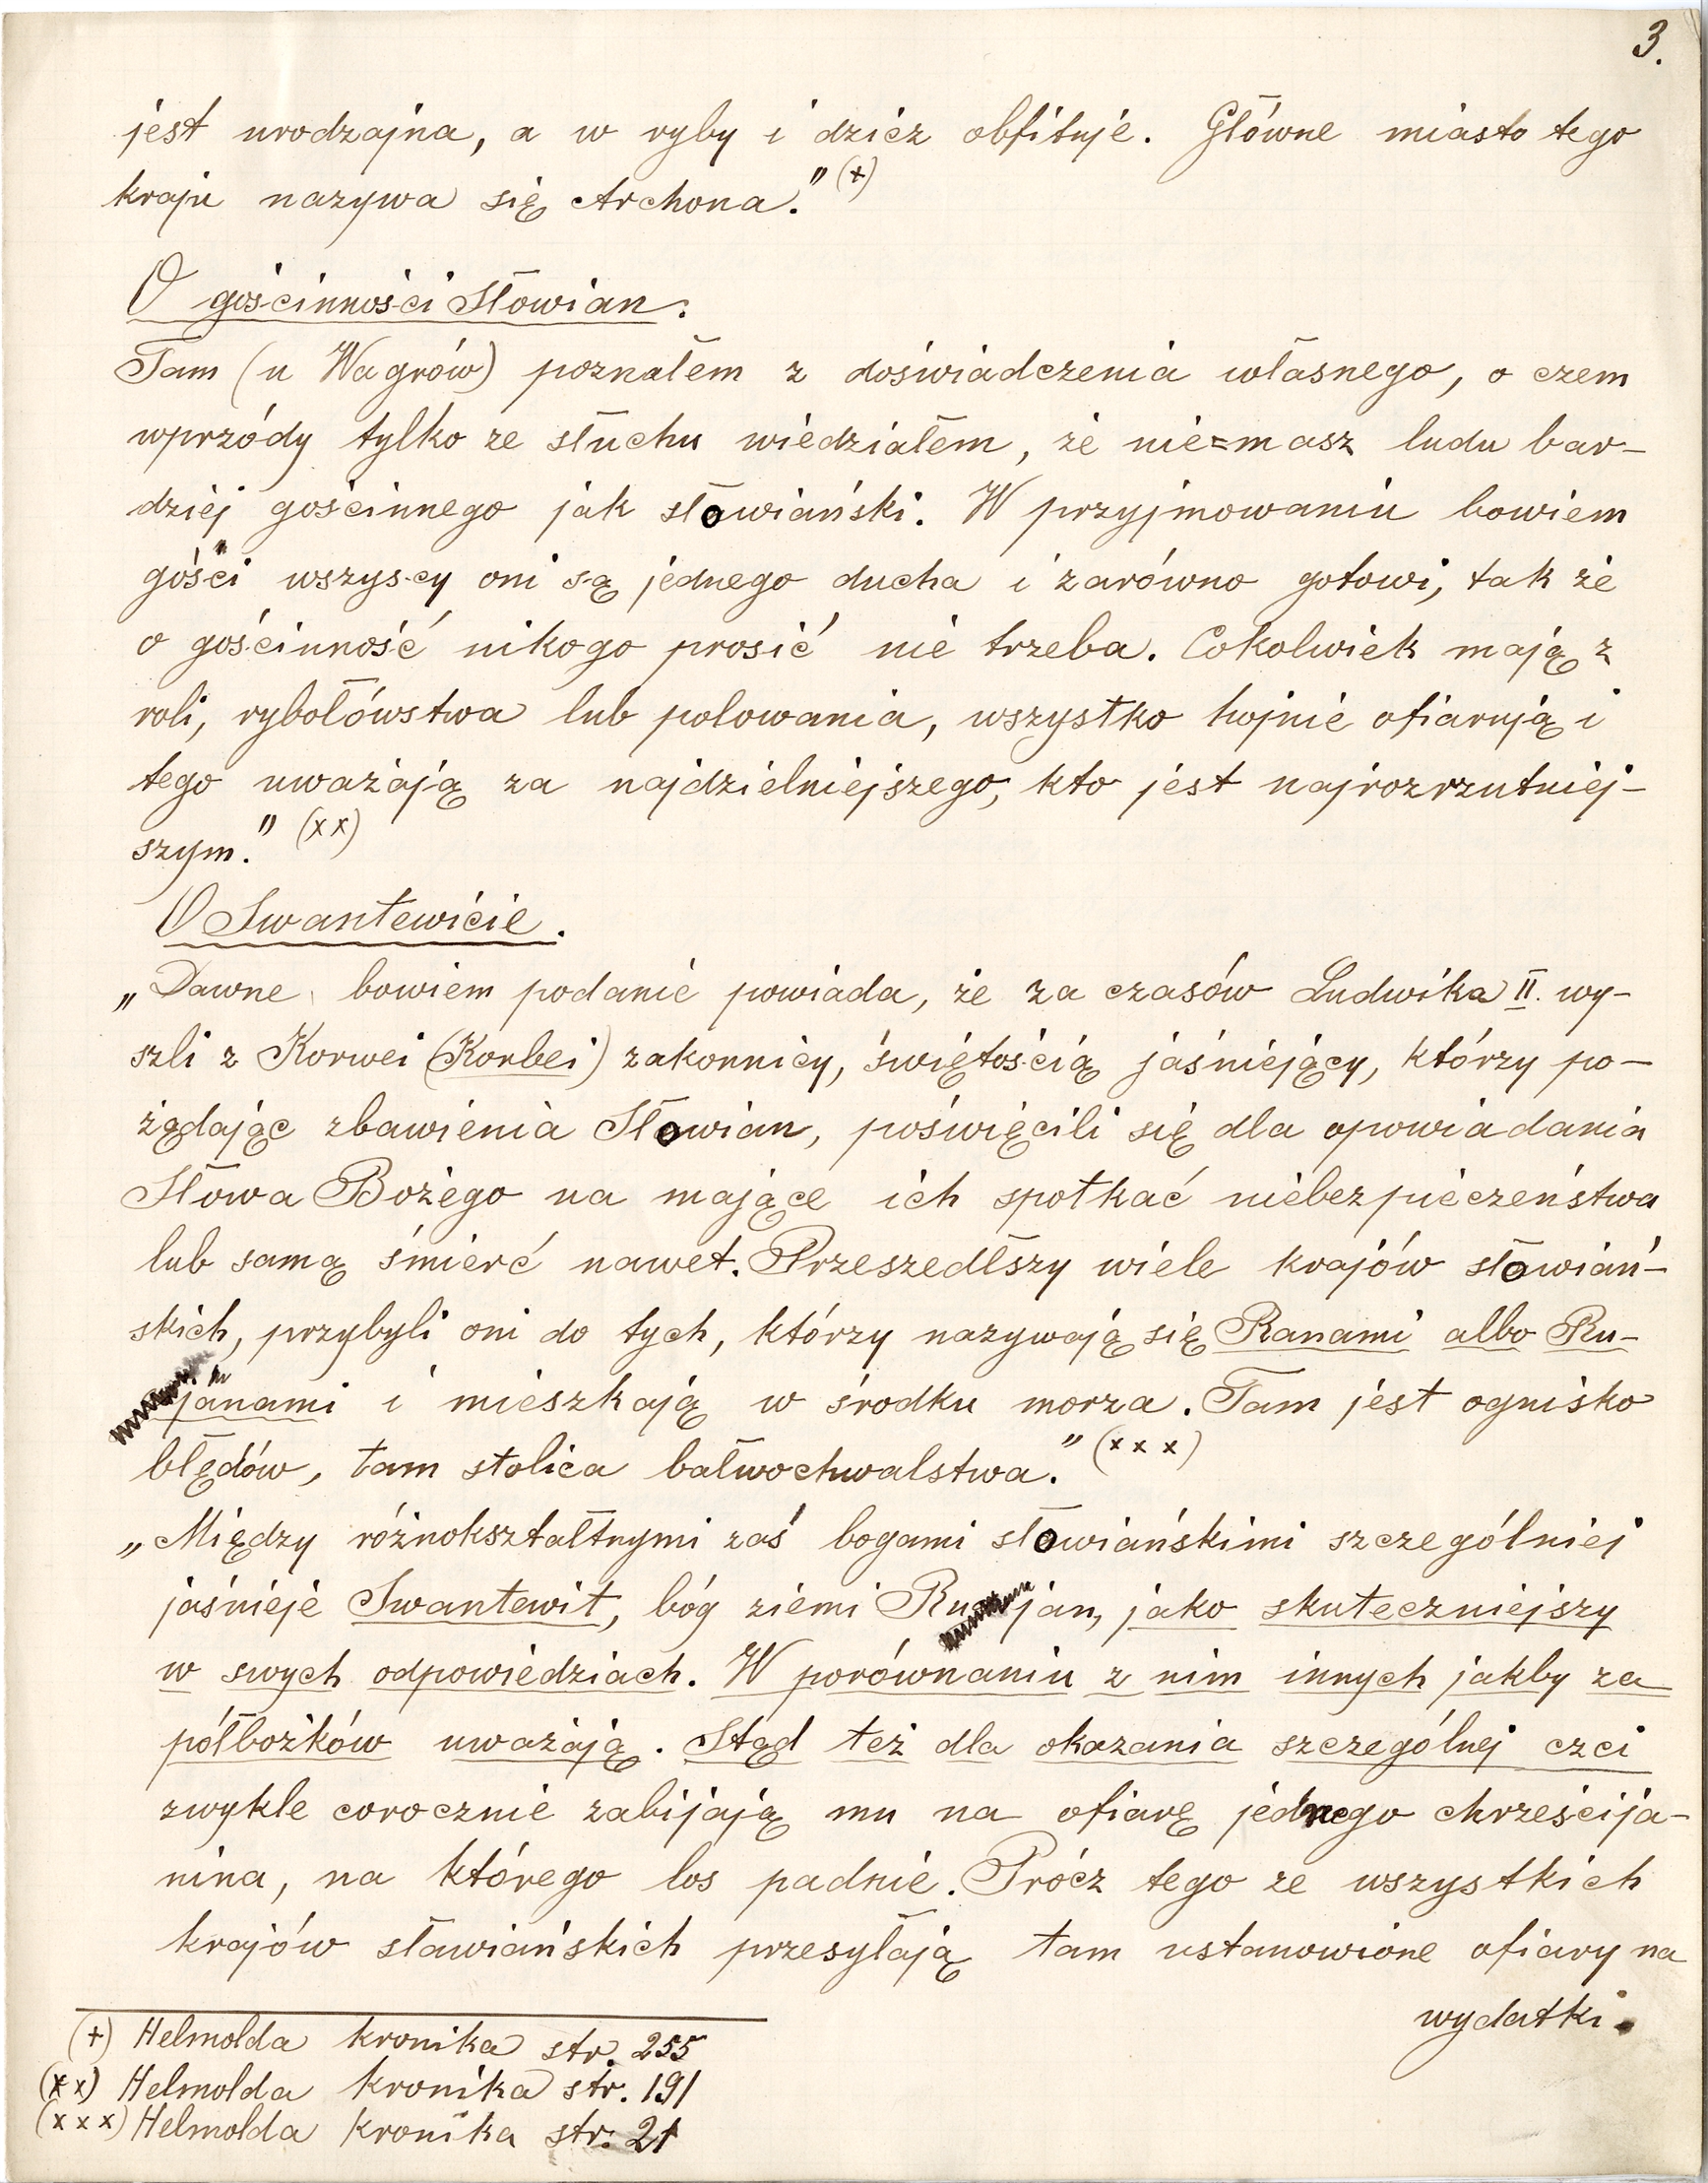 3.
jest urodzajna, a w ryby i dzicz obfituje. Główne miasto tego
kraju nazywa się Archona." (+)
O gościnności Słowian.
Tam (u Wagrów) poznałem z doświadczenia własnego, o czem
wprzódy tylko ze słuchu wiedziałem, że nie=masz ludu bar-
dziej gościnnego jak słowiański. W przyjmowaniu bowiem
gości wszyscy oni są jednego ducha i zarówno gotowi, tak że
o gościnność nikogo prosić nie trzeba. Cokolwiek mają z
roli, rybołówstwa lub polowania, wszystko hojnie ofiarują i
tego uważają za najdzielniejszego, kto jest najrozrzutniej-
szym." (xx)
O Swantewicie.
„Dawne bowiem podanie powiada, że za czasów Ludwika II. wy-
szli z Korwei (Korbei) zakonnicy, świętością jaśniejący, którzy po-
żądając zbawienia Słowian, poświęcili się dla opowiadania
Słowa Bożego na mające ich spotkać niebezpieczeństwa
lub samą śmierć nawet. Przeszedłszy wiele krajów słowiań-
skich, przybyli oni do tych, którzy nazywają się Ranami albo Ru-
janami i mieszkają w środku morza. Tam jest ognisko
błędów, tam stolica bałwochwalstwa." (xxx)
„Między różnokształtnymi zaś bogami słowiańskimi szczególniej
jaśnieje Swantewit, bóg ziemi Rujan, jako skuteczniejszy
w swych odpowiedziach. W porównaniu z nim innych jakby za
półbożków uważają. Stąd też dla okazania szczególnej czci
zwykle corocznie zabijają mu na ofiarę jednego chrześcija-
nina, na którego los padnie. Prócz tego ze wszystkich
krajów sławiańskich przesyłają tam ustanowione ofiary na
wydatki.
(+) Helmolda kronika str. 255
(xx) Helmolda kronika str. 191
(xxx) Helmolda kronika str. 21